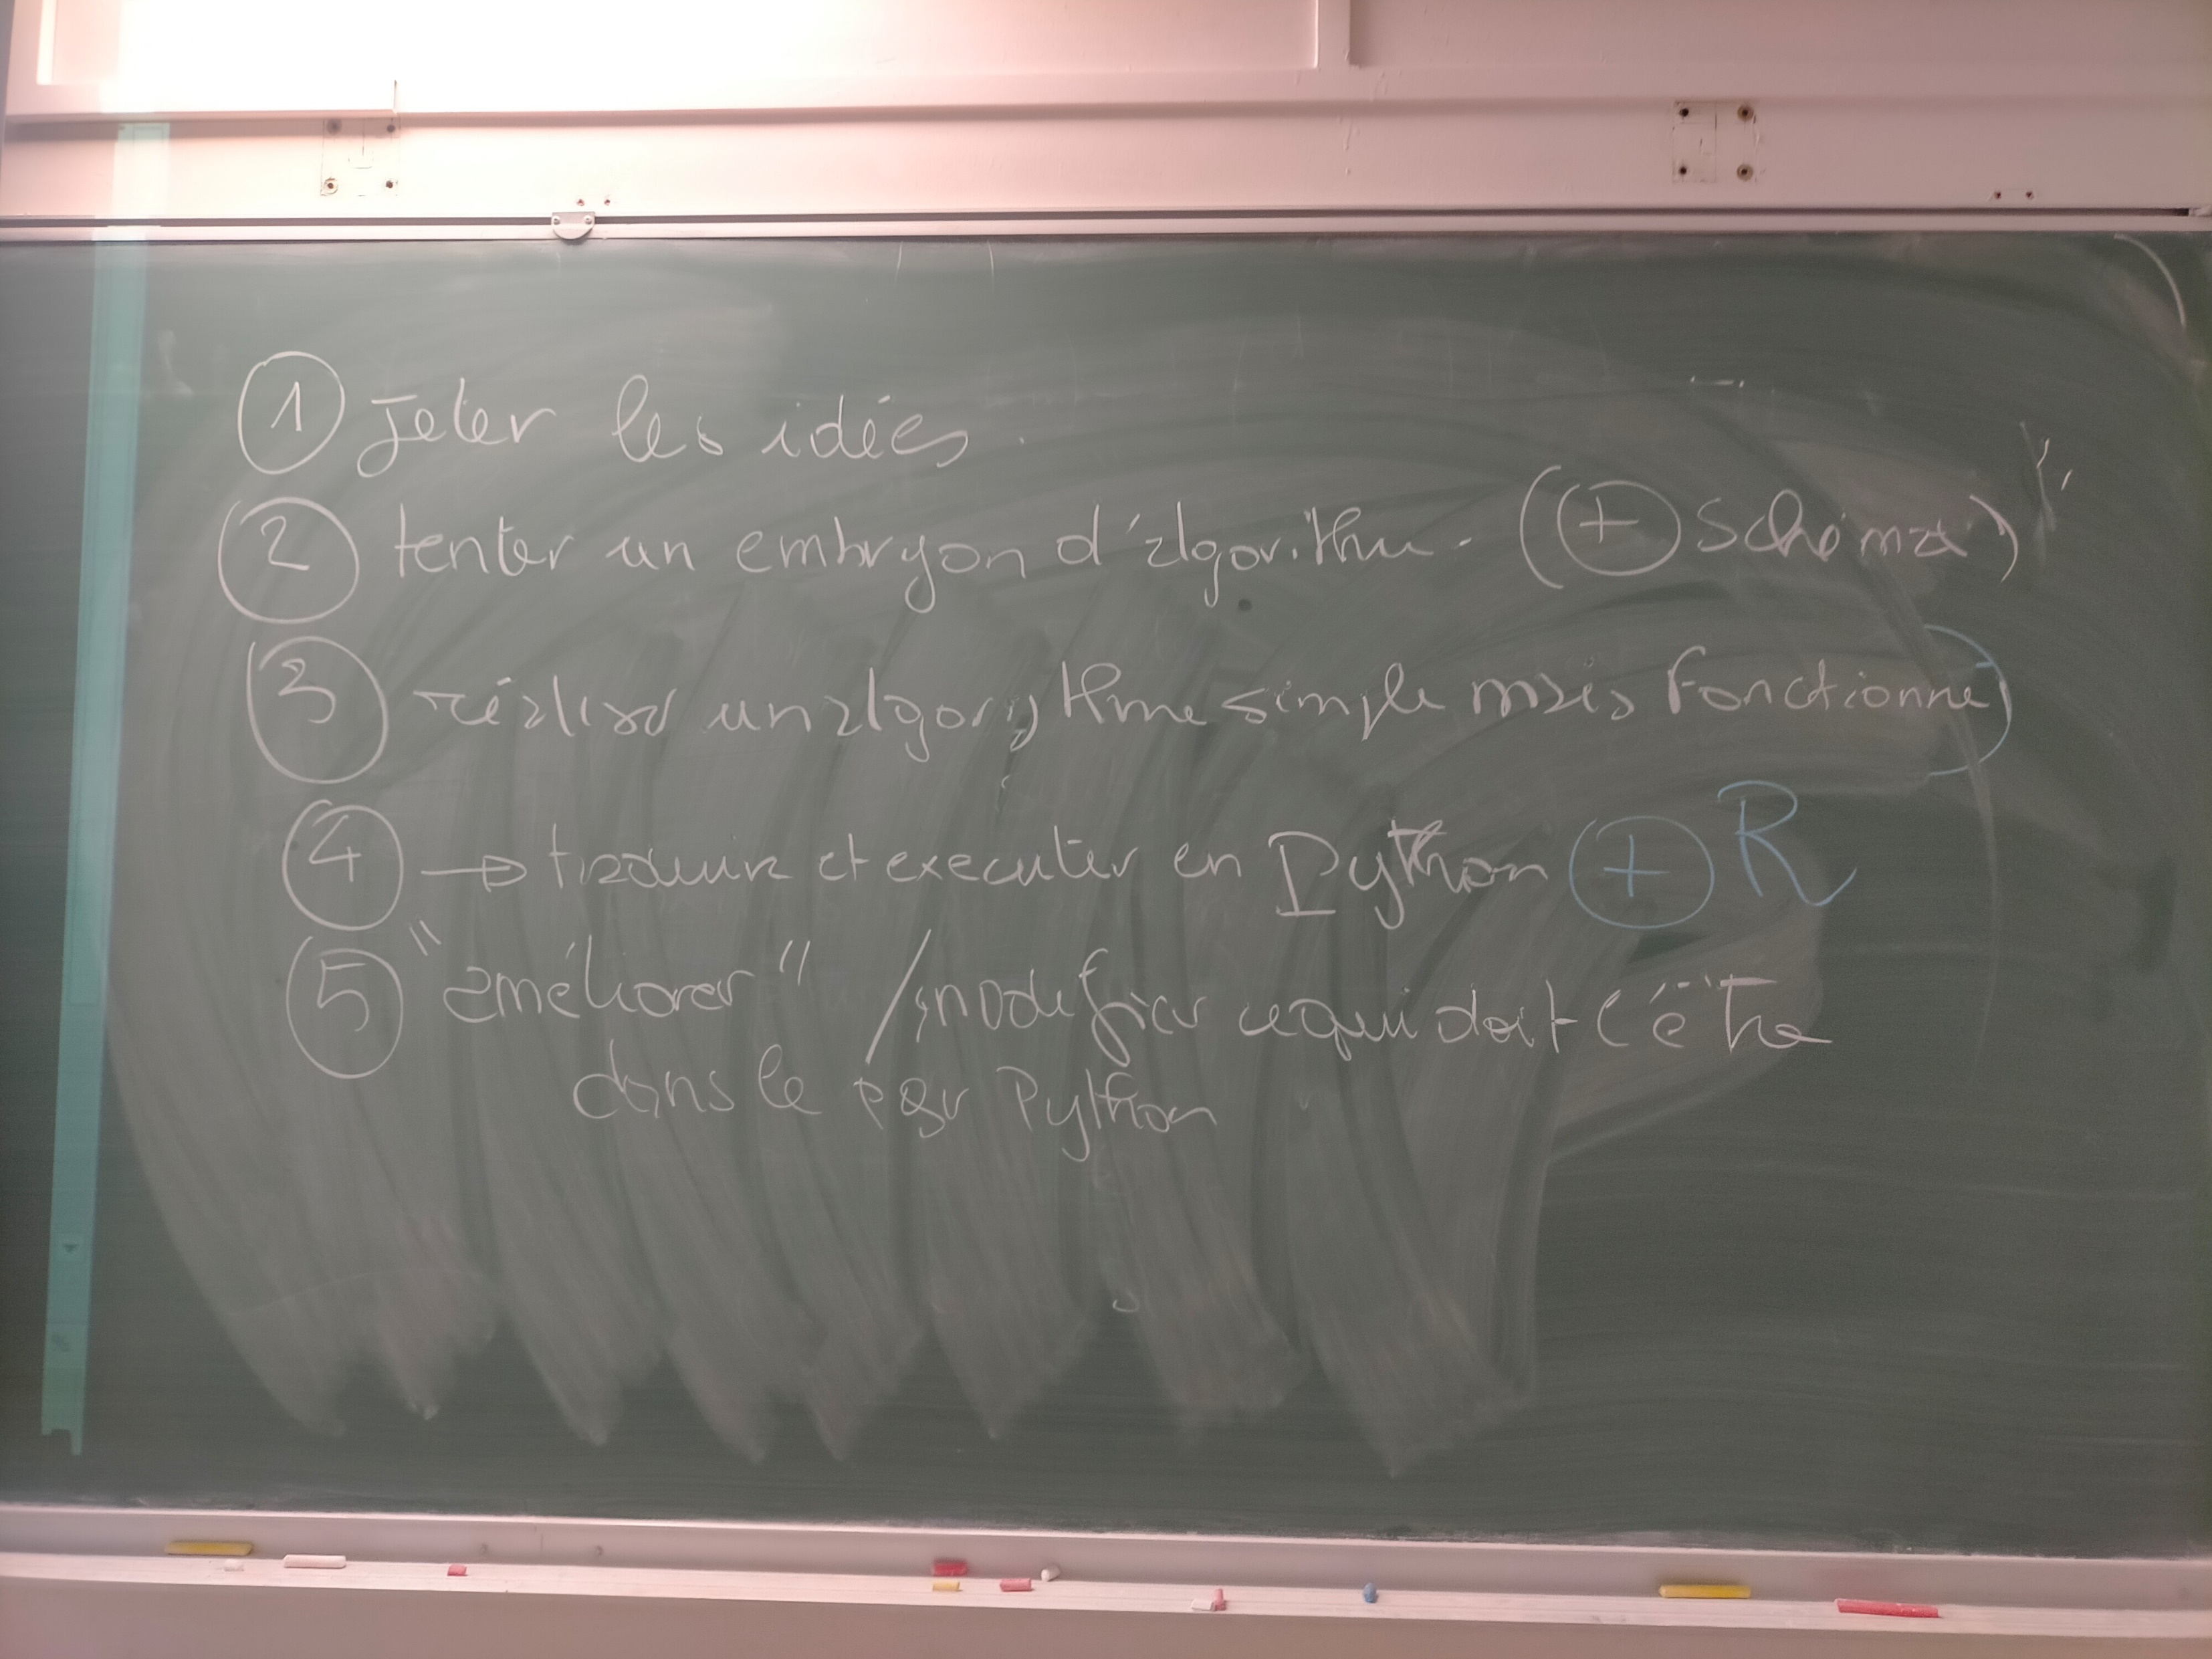 ① Jeter les idées.
② tenter un embryon d'algorithme. (⊕ schéma)
③ réaliser un algorythme simple mais fonctionnel
④ → traduire et executer en Python ⊕ R
⑤ "améliorer" / modifier ce qui doit l'être
dans le pgr Python